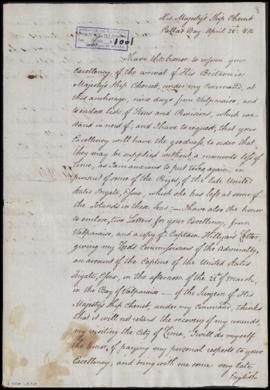 His Majesty's Ship Cherub
Callao Bay, April 28th 1814
1001
I have the honor to inform your
Excellency, of the arrival of His Britannic
Majesty's Ship Cherub, under my Command, at
this anchorage, nine days from Valparaiso, and
to enclose lists of Stores and Provisions, which we
stand in need of, and I have to request, that your
Excellency will have the goodness to order that
they may be supplied without a moments loss of
time, as I am anxious to put to sea again, in
pursuit of some of the Prizes, of the late United
States Frigate, Essex, which she has left at some of
the Islands in these Seas. I have also the honor
to enclose, two Letters for your Excellency, from
Valparaiso, and a copy of Captain Hillyar's Letter
giving my Lords Commissioners of the Admiralty,
an account of the Capture of the United States
Frigate, Essex, in the afternoon of the 28th of March,
in the Bay of Valparaiso. The Surgeon of His
Majesty's Ship Cherub, under my Command, thinks
that it will retard the recovery of my wounds,
my visiting the City of Lima, I will do myself
the honor, of paying my personal respects to your
Excellency, and bring with me some very late
English